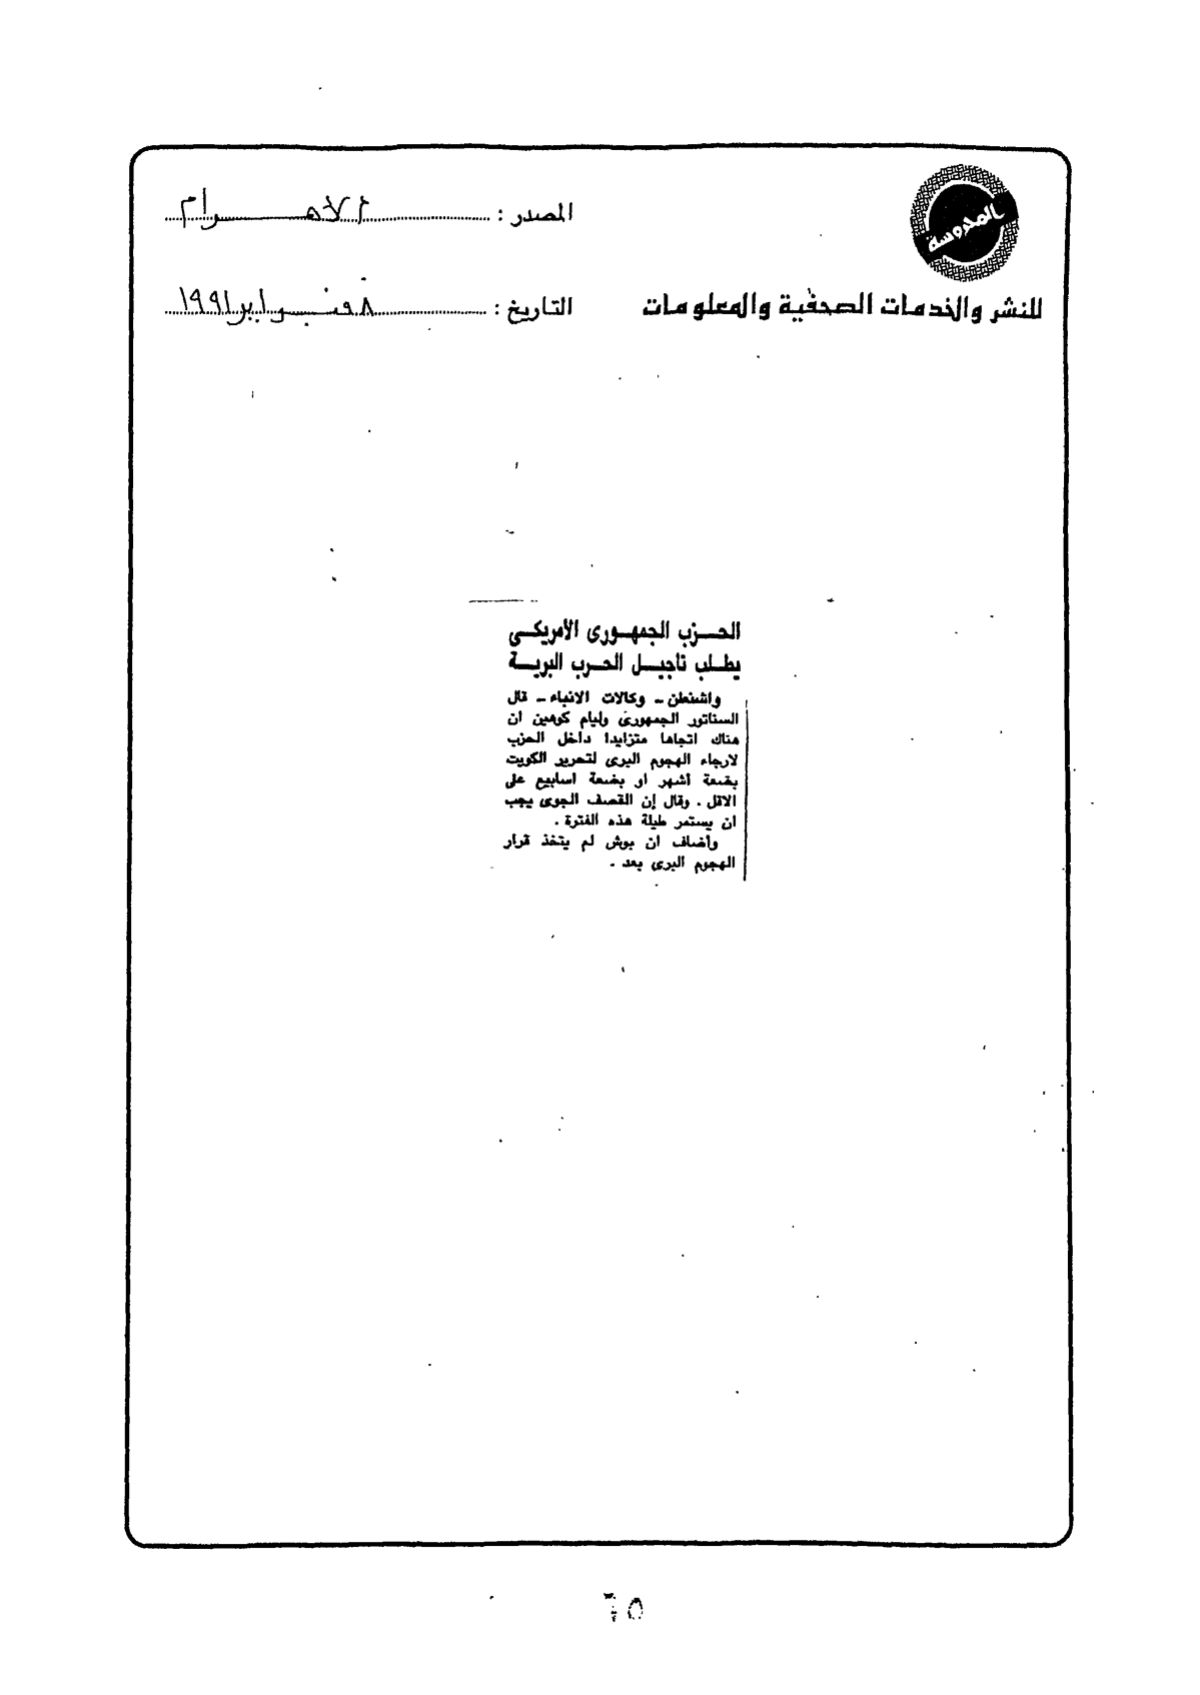 المحروسة
للنشر والخدمات الصحفية والمعلومات
المصدر : الأهرام
التاريخ : ٨ فبراير ١٩٩١
الحزب الجمهورى الأمريكى
يطلب تأجيل الحرب البرية
واشنطن ـ وكالات الانباء ـ قال
السناتور الجمهورى وليام كوهين ان
هناك اتجاها متزايدا داخل الحزب
لارجاء الهجوم البرى لتحرير الكويت
بضعة أشهر او بضعة اسابيع على
الاقل . وقال إن القصف الجوى يجب
ان يستمر طيلة هذه الفترة .
وأضاف ان بوش لم يتخذ قرار
الهجوم البرى بعد .